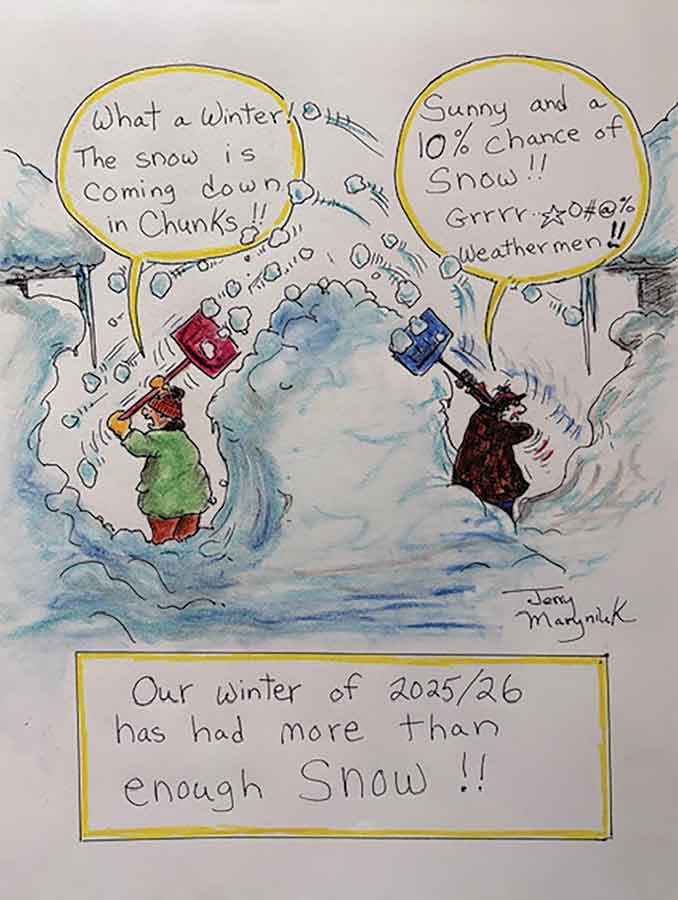 What a Winter!
The snow is
coming down
in Chunks!!
Sunny and a
10% chance of
Snow!!
Grrrr..☆O#@%
Weathermen!!
Jerry
Maryniuk
Our winter of 2025/26
has had more than
enough Snow!!